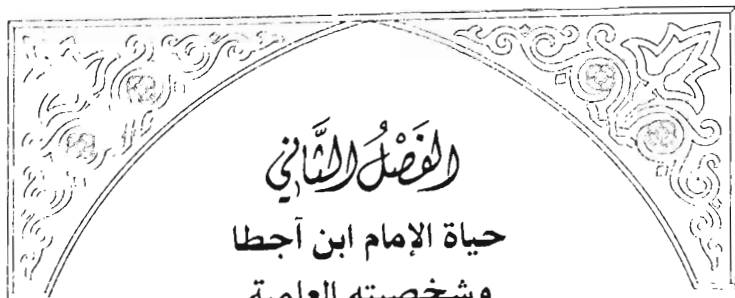 الفَصْلُ الثَّانِي
حياة الإمام ابن آجطا
وشخصيته العلمية